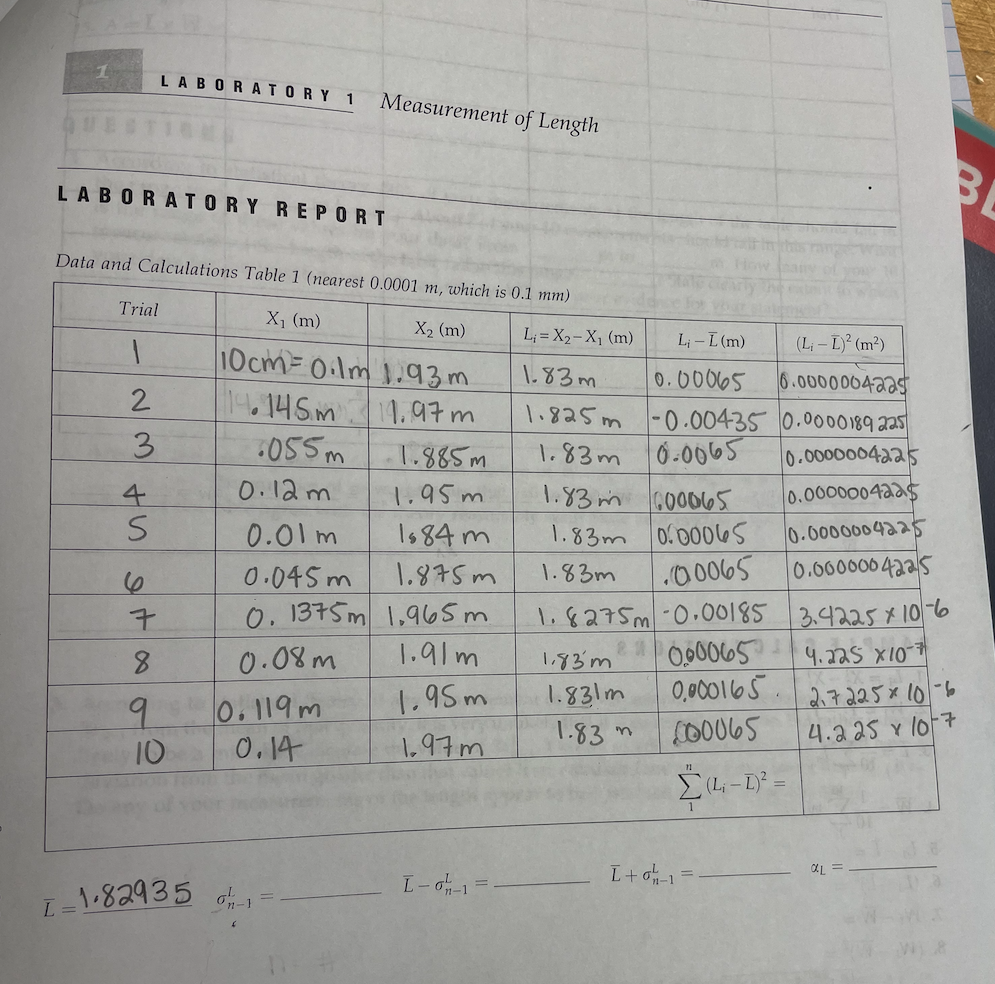 1
LABORATORY 1 Measurement of Length
LABORATORY REPORT
Data and Calculations Table 1 (nearest 0.0001 m, which is 0.1 mm)
Trial X₁ (m) X₂ (m) Lᵢ = X₂ – X₁ (m) Lᵢ – L̅ (m) (Lᵢ – L̅)² (m²)
1 10cm = 0.1m 1.93m 1.83m 0.00065 0.0000004225
2 .145m 1.97m 1.825m -0.00435 0.0000189225
3 .055m 1.885m 1.83m 0.0065 0.0000004225
4 0.12m 1.95m 1.83m 0.00065 0.0000004225
5 0.01m 1.84m 1.83m 0.00065 0.0000004225
6 0.045m 1.875m 1.83m .00065 0.0000004225
7 0.1375m 1.965m 1.8275m -0.00185 3.4225 x 10⁻⁶
8 0.08m 1.91m 1.83m 0.00065 4.225 x 10⁻⁷
9 0.119m 1.95m 1.831m 0.000165 2.7225 x 10⁻⁶
10 0.14 1.97m 1.83m .00065 4.225 x 10⁻⁷
n
∑ (Lᵢ – L̅)² =
1
L̅ = 1.82935 σᴸₙ₋₁ = L̅ – σᴸₙ₋₁ = L̅ + σᴸₙ₋₁ = αL =